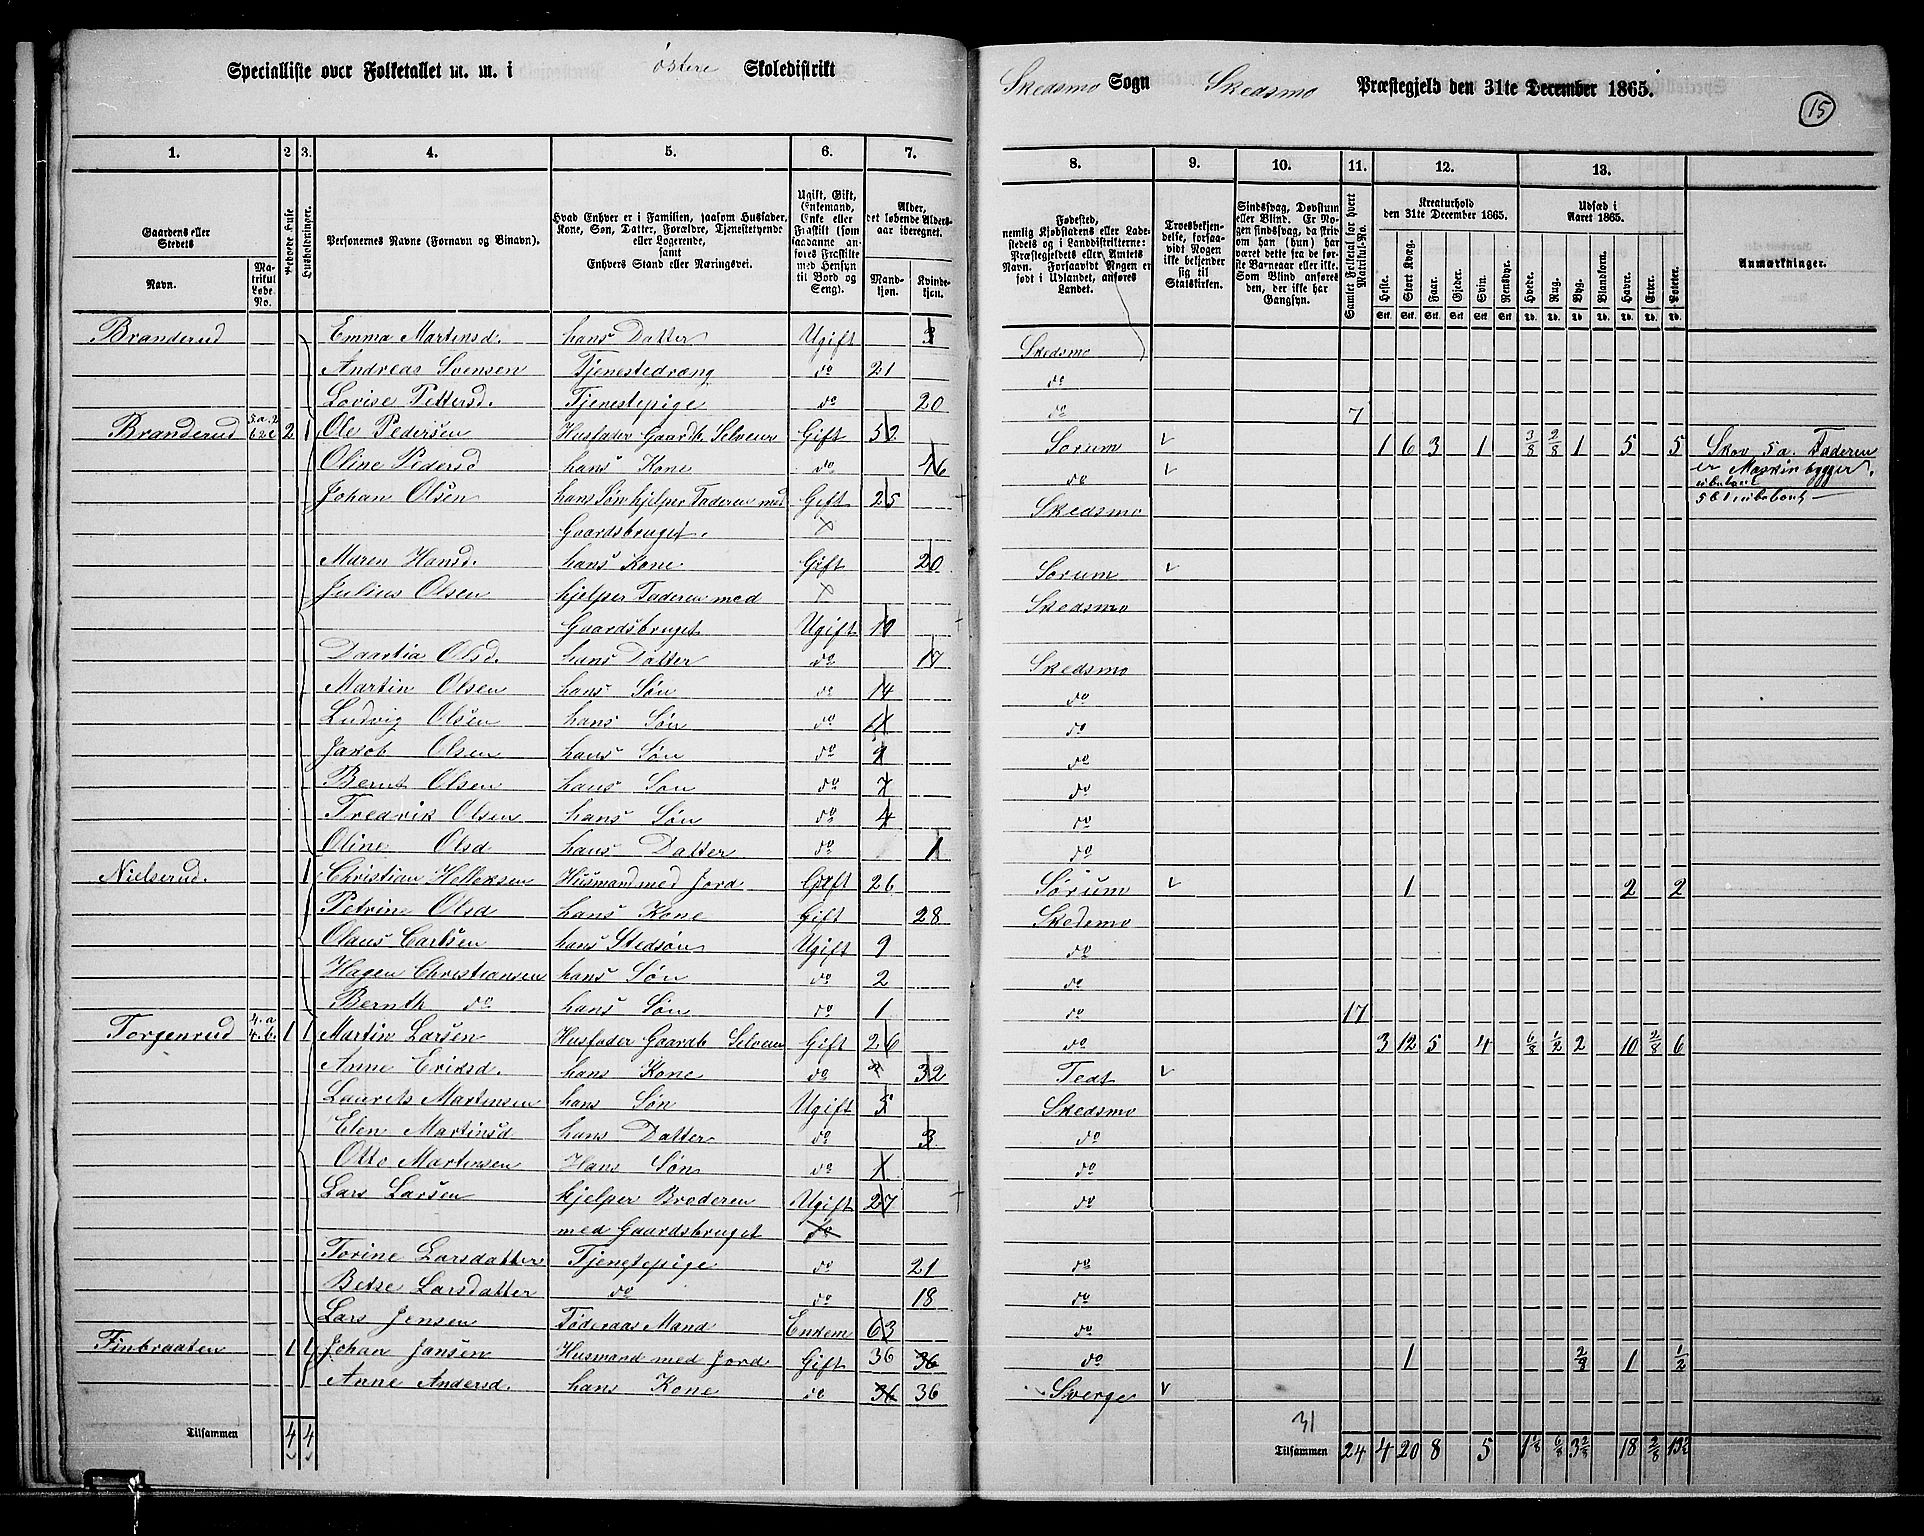 Specialliste over Folketallet m. m. i østere Skoledistrikt Skedsmo Sogn Skedsmo Præstegjeld den 31te December 1865.
15
1. 2 3. 4. 5. 6. 7. 8. 9. 10. 11. 12. 13.
Gaardens eller Stedets
Navn.
Matrikul Løbe No.
Beboede Huse
Husholdninger.
Personernes Navne (Fornavn og Binavn).
Hvad Enhver er i Familien, saasom Husfader, Kone, Søn, Datter, Forældre, Tjenestetyende eller Logerende, samt Enhvers Stand eller Næringsvei.
Ugift, Gift, Enkemand, Enke eller Fraskilt (som saadanne anføres Fraskilte med Hensyn til Bord og Seng).
Alder, det løbende Aldersaar iberegnet.
Mandkjøn. Kvindekjøn.
Fødested, nemlig Kjøbstadens eller Ladestedets og i Landdistrikterne: Præstegjeldets eller Amtets Navn. Forsaavidt Nogen er født i Udlandet, anføres Landet.
Troesbekjendelse, forsaavidt Nogen ikke bekjender sig til Statskirken.
Sindssvag, Døvstum eller Blind. Er Nogen sindssvag, da skrives om han (hun) har været dette fra de første Barneaar eller ikke. Som Blind anføres den, der ikke har Gangsyn.
Samlet Folketal for hvert Matrikul-No.
Kreaturhold den 31te December 1865.
Heste. Stort Kvæg. Faar. Gjeder. Svin. Rensdyr.
Udsæd i Aaret 1865.
Hvede. Rug. Byg. Blandkorn. Havre. Erter. Poteter.
Anmærkninger.
Branderud Emma Martinsd. hans Datter Ugift 3 Skedsmo
Andreas Svensen Tjenestedræng do 21 do
Lovise Pettersd. Tjenestepige do 20 do 7
Branderud 2 1 Ole Pedersen Husfader Gaardb. Selveier Gift 52 Sørum 1 6 3 1 3/8 2/8 1 5 5 Skov 5 a. Faderen
Oline Pedersd hans Kone do 46 do er Maskinbygger.
Johan Olsen hans Søn hjelper Faderen med Gift 25 Skedsmo
Gaardsbruget.
Maren Hansd. hans Kone Gift 20 Sørum
Julius Olsen hjelper Faderen med Skedsmo
Gaardsbruget Ugift 19
Olsd. hans Datter do 17 Skedsmo
Martin Olsen hans Søn do 14 do
Ludvig Olsen hans Søn do 11 do
Jakob Olsen hans Søn do 9 do
Bernt Olsen hans Søn do 7 do
Fredrik Olsen hans Søn do 4 do
Oline Olsd hans Datter do 1 do
Nielserud. 1 Christian Husmand med Jord Gift 26 Sørum 1 2 2
Petrine Olsd hans Kone Gift 28 Skedsmo
Olaus Carlsen hans Stedsøn Ugift 9 do
Hagen Christiansen hans Søn do 2 do
Bernth do hans Søn do 1 do 17
Torgenrud 4.a 4.b. 1 1 Martin Larsen Husfader Gaardb Selveier Gift 26 do 3 12 5 4 6/8 1/2 2 10 2/8 6
Anne Eriksd. hans Kone do 32 Fedt
Laurits Martinsen hans Søn Ugift 5 Skedsmo
Elen Martinsd hans Datter do 3 do
Otto Martensen Hans Søn do 1 do
Lars Larsen hjelper Broderen Ugift 27 do
med Gaardsbruget do
Torine Larsdatter Tjenstepige do 21 do
Betse Larsdatter do do 18 do
Lars Jensen Føderaas Mand Enkem 63 do
Finbraaten 1 1 Johan Jansen Husmand med Jord Gift 36 36 do 1 2/8 1 1/2
Anne Andersd. hans Kone do 36 36 Sverge
31
Tilsammen 4 4 Tilsammen 24 4 20 8 5 1 1/8 6/8 3 2/8 18 2/8 13 1/2